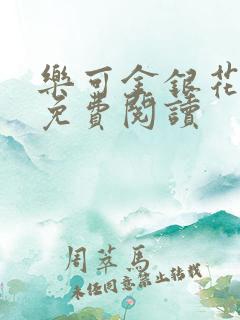 樂可金銀花
免費閱讀
周萃馬
未经同意禁止转载